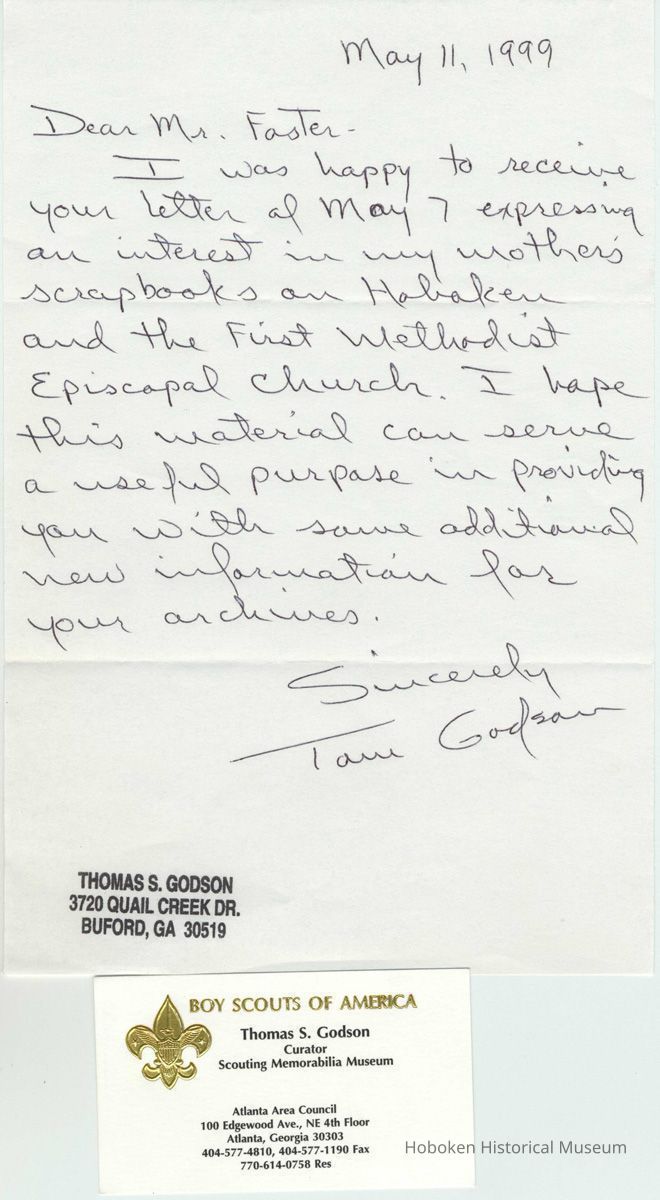 May 11, 1999
Dear Mr. Foster-
I was happy to receive
your letter of May 7 expressing
an interest in my mother's
scrapbooks on Hoboken
and the First Methodist
Episcopal Church. I hope
this material can serve
a useful purpose in providing
you with some additional
new information for
your archives.
Sincerely
Tom Godson
THOMAS S. GODSON
3720 QUAIL CREEK DR.
BUFORD, GA 30519
BOY SCOUTS OF AMERICA
Thomas S. Godson
Curator
Scouting Memorabilia Museum
Atlanta Area Council
100 Edgewood Ave., NE 4th Floor
Atlanta, Georgia 30303
404-577-4810, 404-577-1190 Fax
770-614-0758 Res
Hoboken Historical Museum